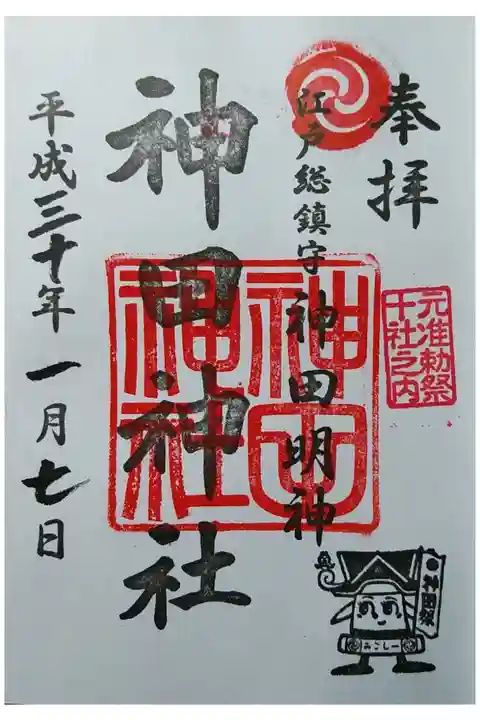 奉拝
元准勅祭
十社之内
江戸総鎮守 神田明神
神田神社
神田
神社
平成三十年 一月七日
神田祭
みこしー